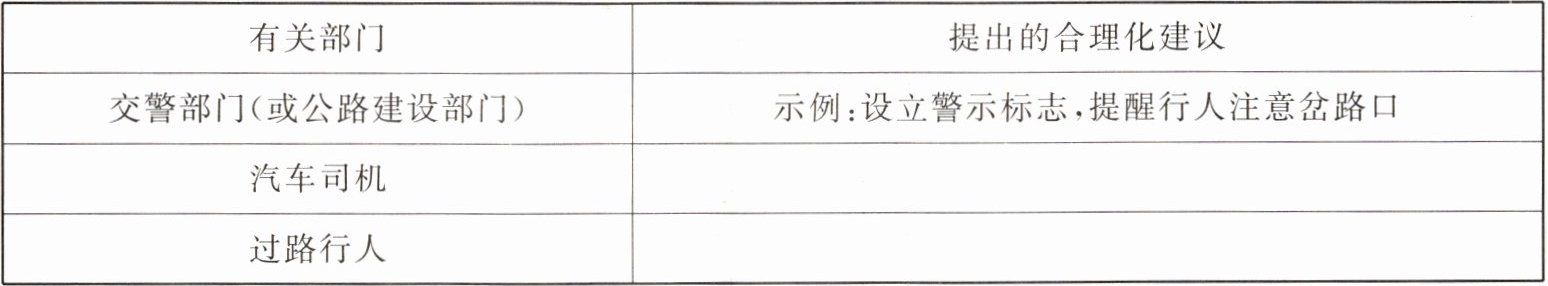 有关部门 提出的合理化建议
交警部门(或公路建设部门) 示例:设立警示标志,提醒行人注意岔路口
汽车司机
过路行人